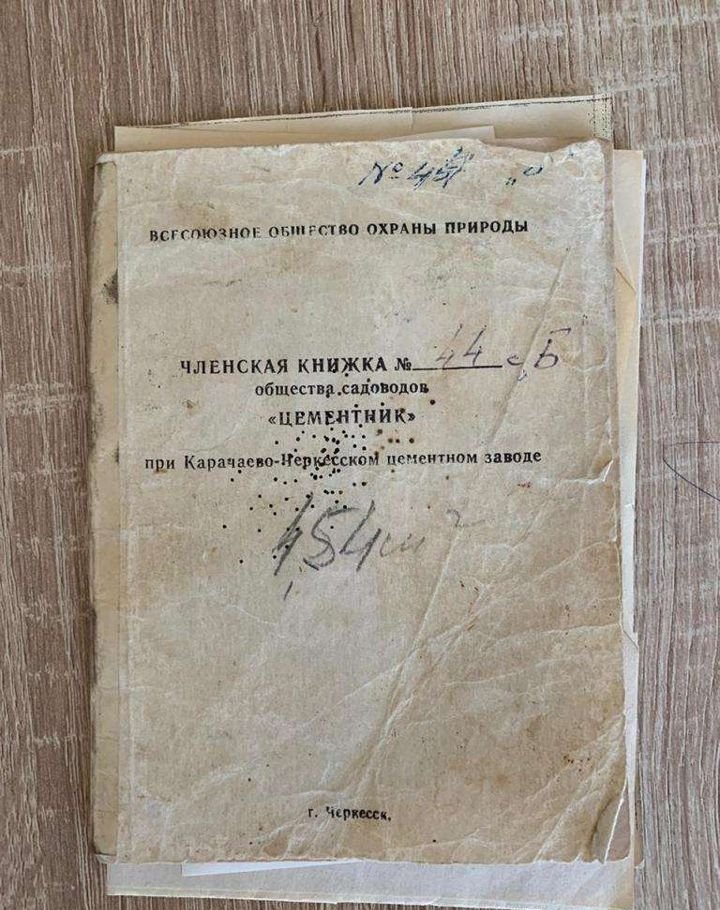 № 45
ВСЕСОЮЗНОЕ ОБЩЕСТВО ОХРАНЫ ПРИРОДЫ
ЧЛЕНСКАЯ КНИЖКА № 44 с/Б
общества садоводов
«ЦЕМЕНТНИК»
при Карачаево-Черкесском цементном заводе
г. Черкесск.